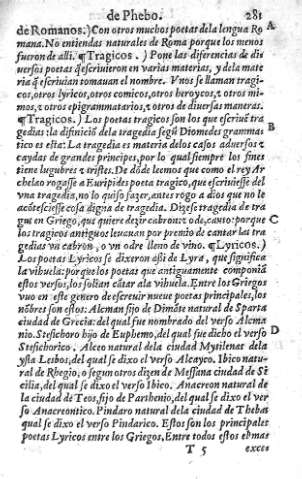 de Phebo. 281
de Romanos.) Con otros muchos poetas dela lengua Ro A
mana. No entiendas naturales de Roma porque los menos
fueron de alli. ¶Tragicos.) Pone las diferencias de di
uersos poetas q̃ escriuieron en varias materias, y dela mate
ria q̃ escriuian tomauan el nombre. Vnos se llaman tragi-
cos, otros lyricos, otros comicos, otros heroycos, ⁊ otros mi-
mos, ⁊ otros epigrammatarios, ⁊ otros de diuersas maneras.
¶Tragicos.) Los poetas tragicos son los que escriuē tra B
gedias: la difinició dela tragedia segũ Diomedes gramma
tico es esta: La tragedia es materia delos casos aduersos ⁊
caydas de grandes principes, por lo qual siempre los fines
tiene lugubres ⁊ tristes. De dōde leemos que como el rey Ar
chelao rogasse a Euripides poeta tragico, que escriuiesse del
vna tragedia, no lo quiso fazer, antes rogo a dios que no le
acōteciesse cosa digna de tragedia. Dizese tragedia de tra
gus en Griego, que quiere dezir cabron: ⁊ ode, canto: porque C
los tragicos antiguos leuauan por premio de cantar las tra
gedias vn cabron, o vn odre lleno de vino. ¶Lyricos.)
Los poetas Lyricos se dixeron assi de Lyra, que significa
la vihuela: porque los poetas que antiguamente componiā
estos versos, los solian cātar ala vihuela. Entre los Griegos
vuo en este genero de escreuir nueue poetas principales, los
nōbres son estos: Alcman fijo de Dimāte natural de Sparta
ciudad de Grecia: del qual fue nombrado el verso Alcma
nio. Stesichoro hijo de Euphemo, del qual fue dicho el verso D
Stesichorico. Alceo natural dela ciudad Mytilenas dela
ysla Lesbos, del qual se dixo el verso Alcayco. Ibico natu-
ral de Rhegio, o segun otros dizen de Messana ciudad de Si
cilia, del qual se dixo el verso Ibico. Anacreon natural de
la ciudad de Teos, fijo de Parthenio, del qual se dixo el ver
so Anacreontico. Pindaro natural dela ciudad de Thebas
qual se dixo el verso Pindarico. Estos son los principales
poetas Lyricos entre los Griegos. Entre todos estos
T 5 exces